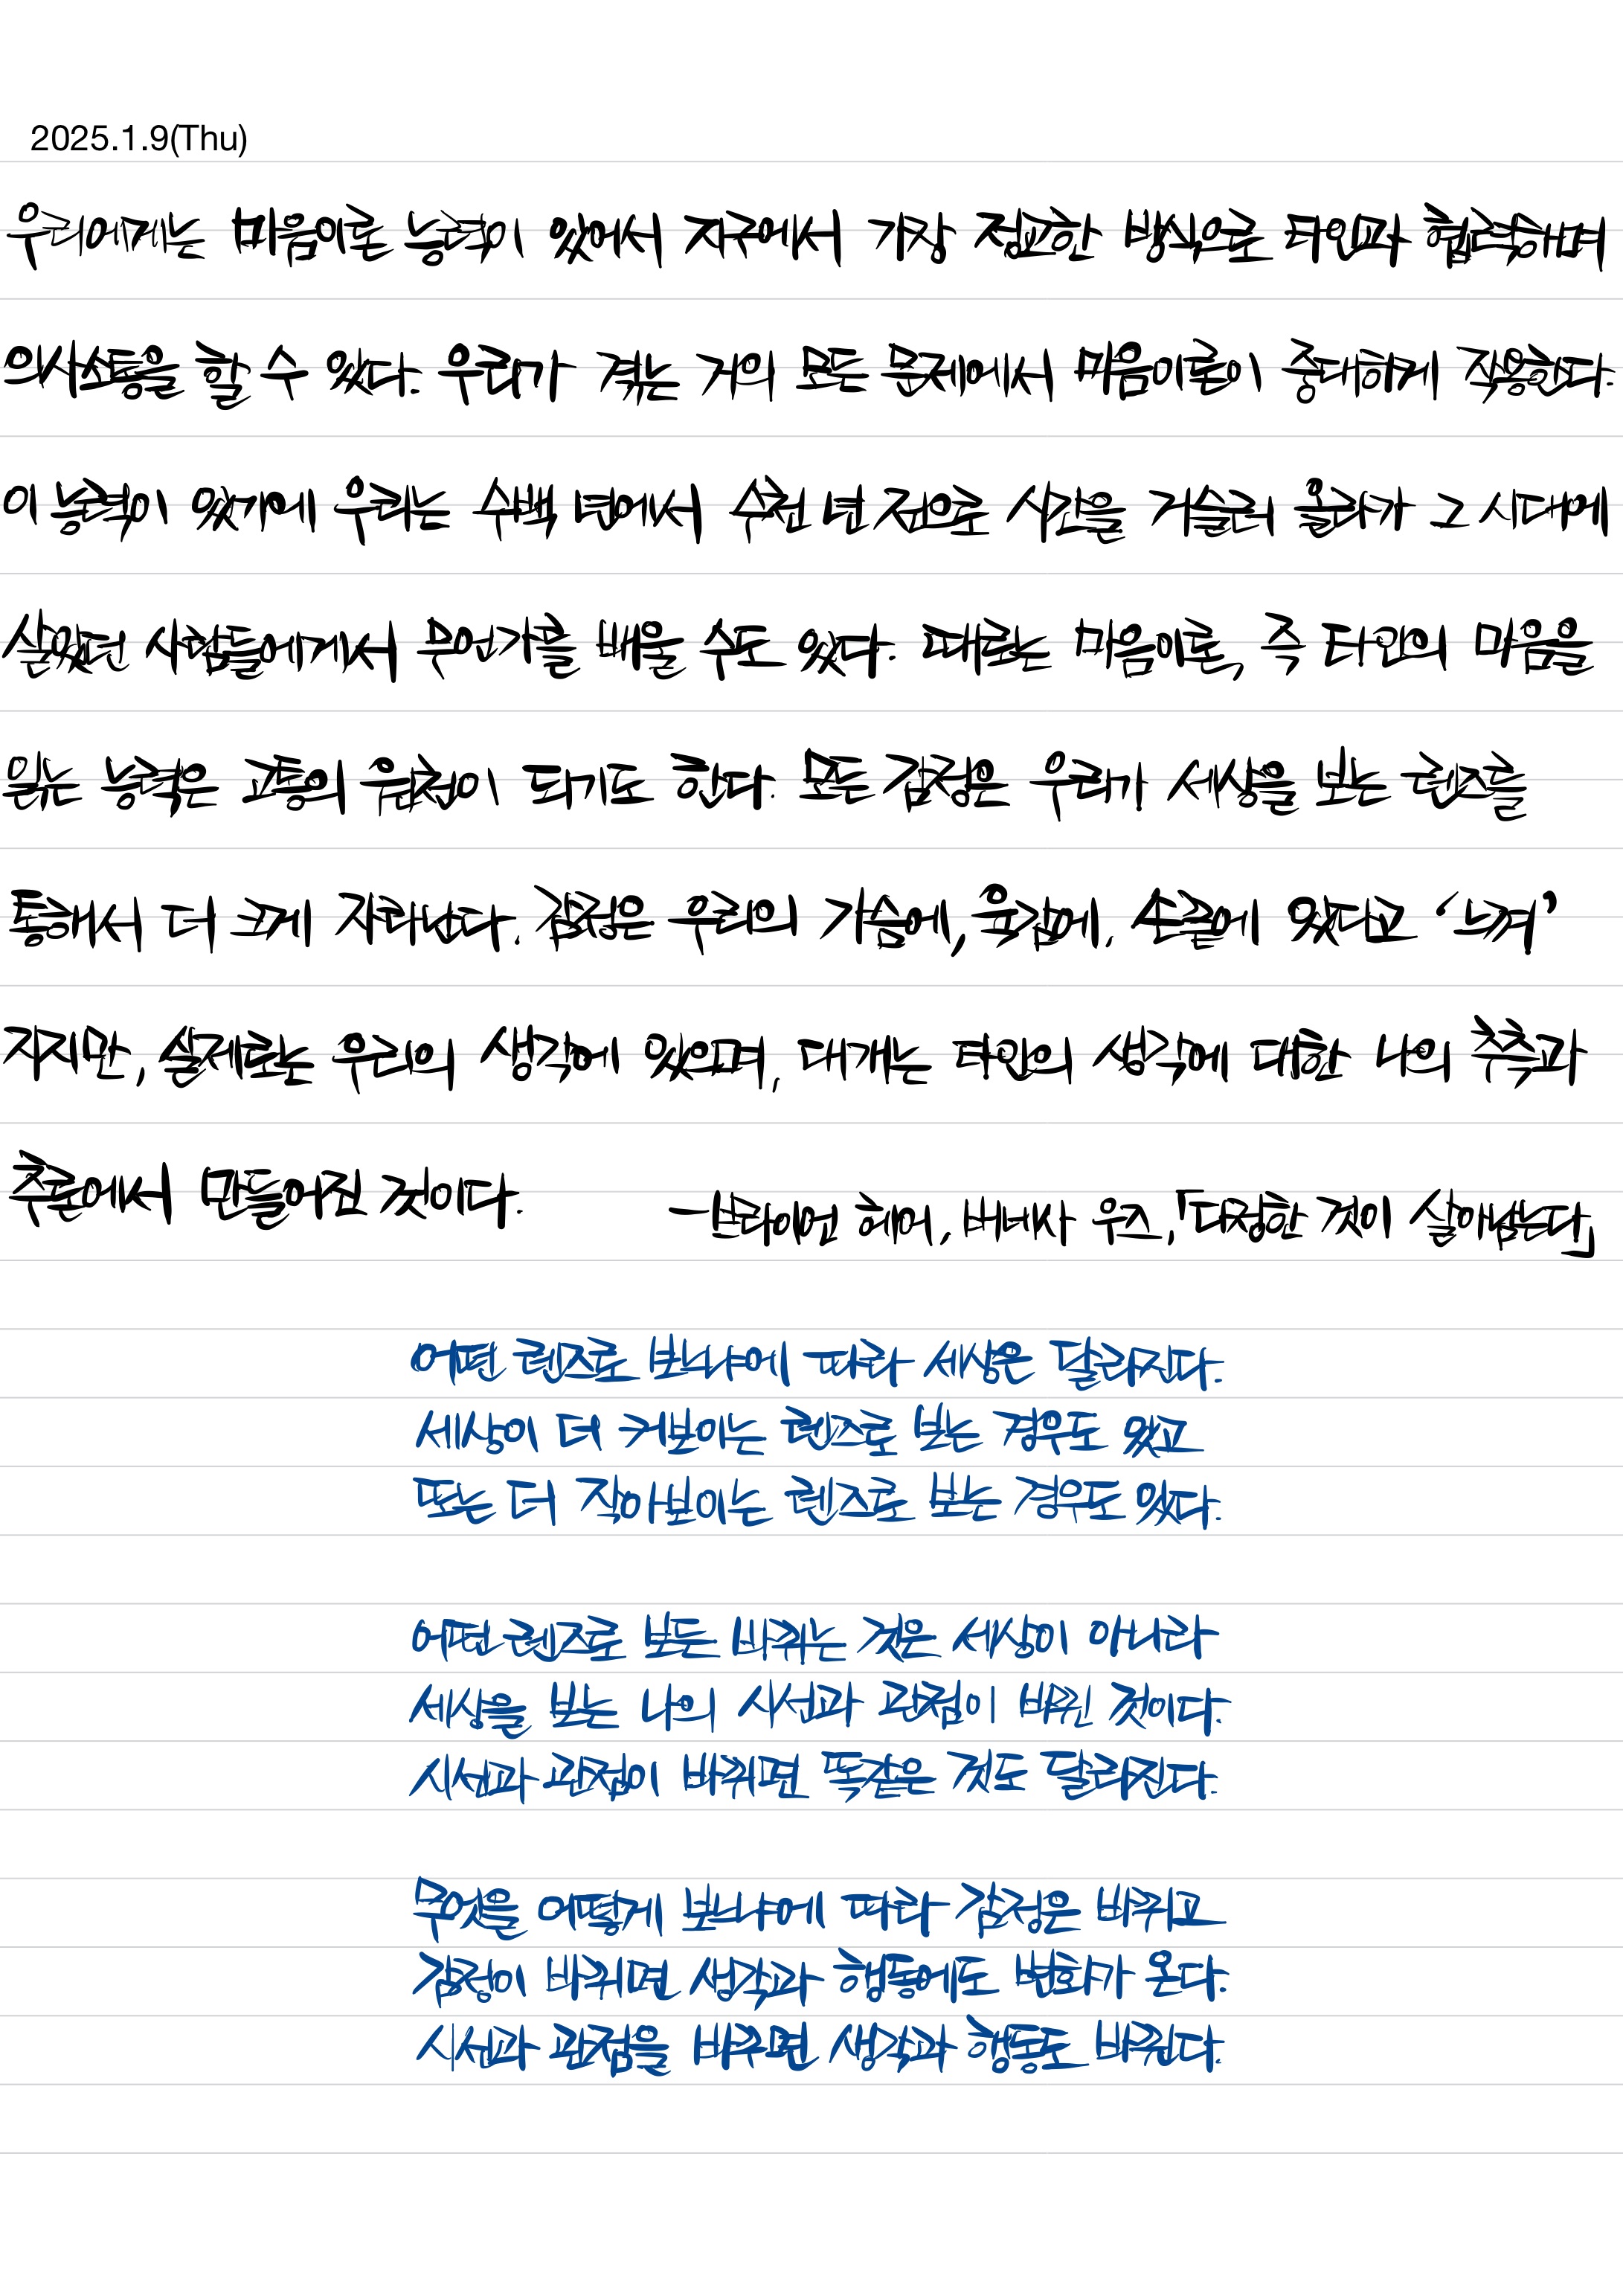 2025.1.9(Thu)
우리에게는 마음이론 능력이 있어서 지구에서 가장 정교한 방식으로 타인과 협력하며
의사소통을 할 수 있다. 우리가 겪는 거의 모든 문제에서 마음이론이 중대하게 작용한다.
이 능력이 있기에 우리는 수백 년에서 수천 년 전으로 시간을 거슬러 올라가 그 시대에
살았던 사람들에게서 무언가를 배울 수도 있다. 때로는 마음이론, 즉 타인의 마음을
읽는 능력은 고통의 원천이 되기도 한다. 모든 감정은 우리가 세상을 보는 렌즈를
통해서 더 크게 자라난다. 감정은 우리의 가슴에, 육감에, 손끝에 있다고 ‘느껴’
지지만, 실제로는 우리의 생각에 있으며, 대개는 타인의 생각에 대한 나의 추측과
추론에서 만들어진 것이다.
—브라이언 헤어, 버네사 우즈,「다정한 것이 살아남는다」
어떤 렌즈로 보느냐에 따라 세상은 달라진다.
세상이 더 커보이는 렌즈로 보는 경우도 있고
또는 더 작아보이는 렌즈로 보는 경우도 있다.
어떤 렌즈로 보든 바뀌는 것은 세상이 아니라
세상을 보는 나의 시선과 관점이 바뀐 것이다.
시선과 관점이 바뀌면 똑같은 것도 달라진다.
무엇을 어떻게 보느냐에 따라 감정은 바뀌고
감정이 바뀌면 생각과 행동에도 변화가 온다.
시선과 관점을 바꾸면 생각과 행동도 바뀐다.